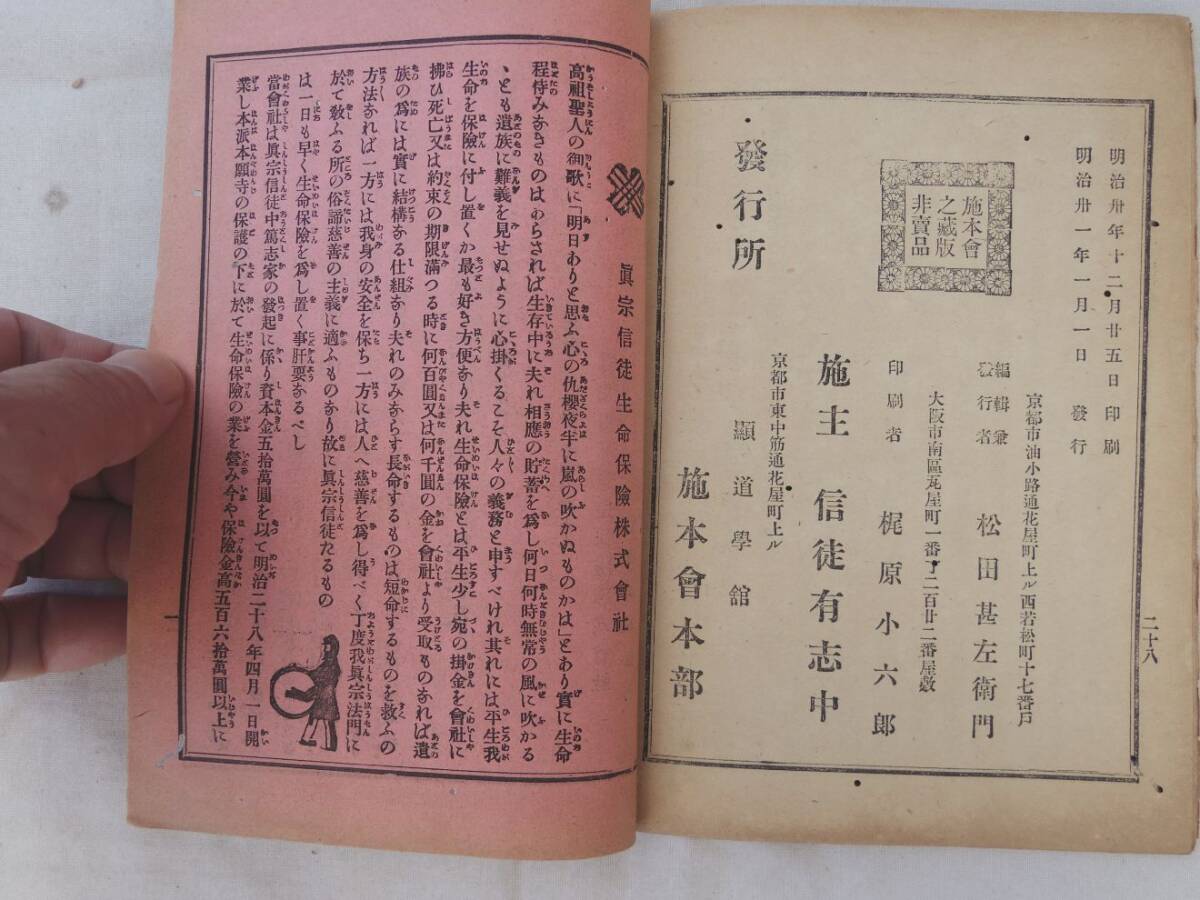 明治卅年十二月廿五日印刷
明治卅一年一月一日發行
施本會
之藏版
非賣品
京都市油小路通花屋町上ル西若松町十七番戸
編輯兼
發行者 松田甚左衛門
大阪市南區瓦屋町一番丁二百廿二番屋敷
印刷者 梶原小六郎
施主 信徒有志中
京都市東中筋通花屋町上ル
發行所 顯道學館
施本會本部
二十八
眞宗信徒生命保險株式會社
高祖聖人の御歌に「明日ありと思ふ心の仇櫻夜半に嵐の吹かぬものかは」とあり實に生命
程恃みなきものはあらされば生存中に夫れ相應の貯蓄を爲し何日何時無常の風に吹かる
ヽとも遺族に難義を見せぬように心掛くるこそ人々の義務と申すべけれ其れには平生我
生命を保險に付し置くか最も好き方便なり夫れ生命保險とは平生少し宛の掛金を會社に
拂ひ死亡又は約束の期限滿つる時に何百圓又は何千圓の金を會社より受取ものなれば遺
族の爲には實に結構なる仕組なり夫れのみならす長命するものは短命するものを救ふの
方法なれば一方には我身の安全を保ち一方には人へ慈善を爲し得べく丁度我眞宗法門に
於て敎ふる所の俗諦慈善の主義に適ふものなり故に眞宗信徒たるもの
は一日も早く生命保險を爲し置く事肝要なるべし
當會社は眞宗信徒中篤志家の發起に係り資本金五拾萬圓を以て明治二十八年四月一日開
業し本派本願寺の保護の下に於て生命保險の業を營み今や保險金高五百六拾萬圓以上に